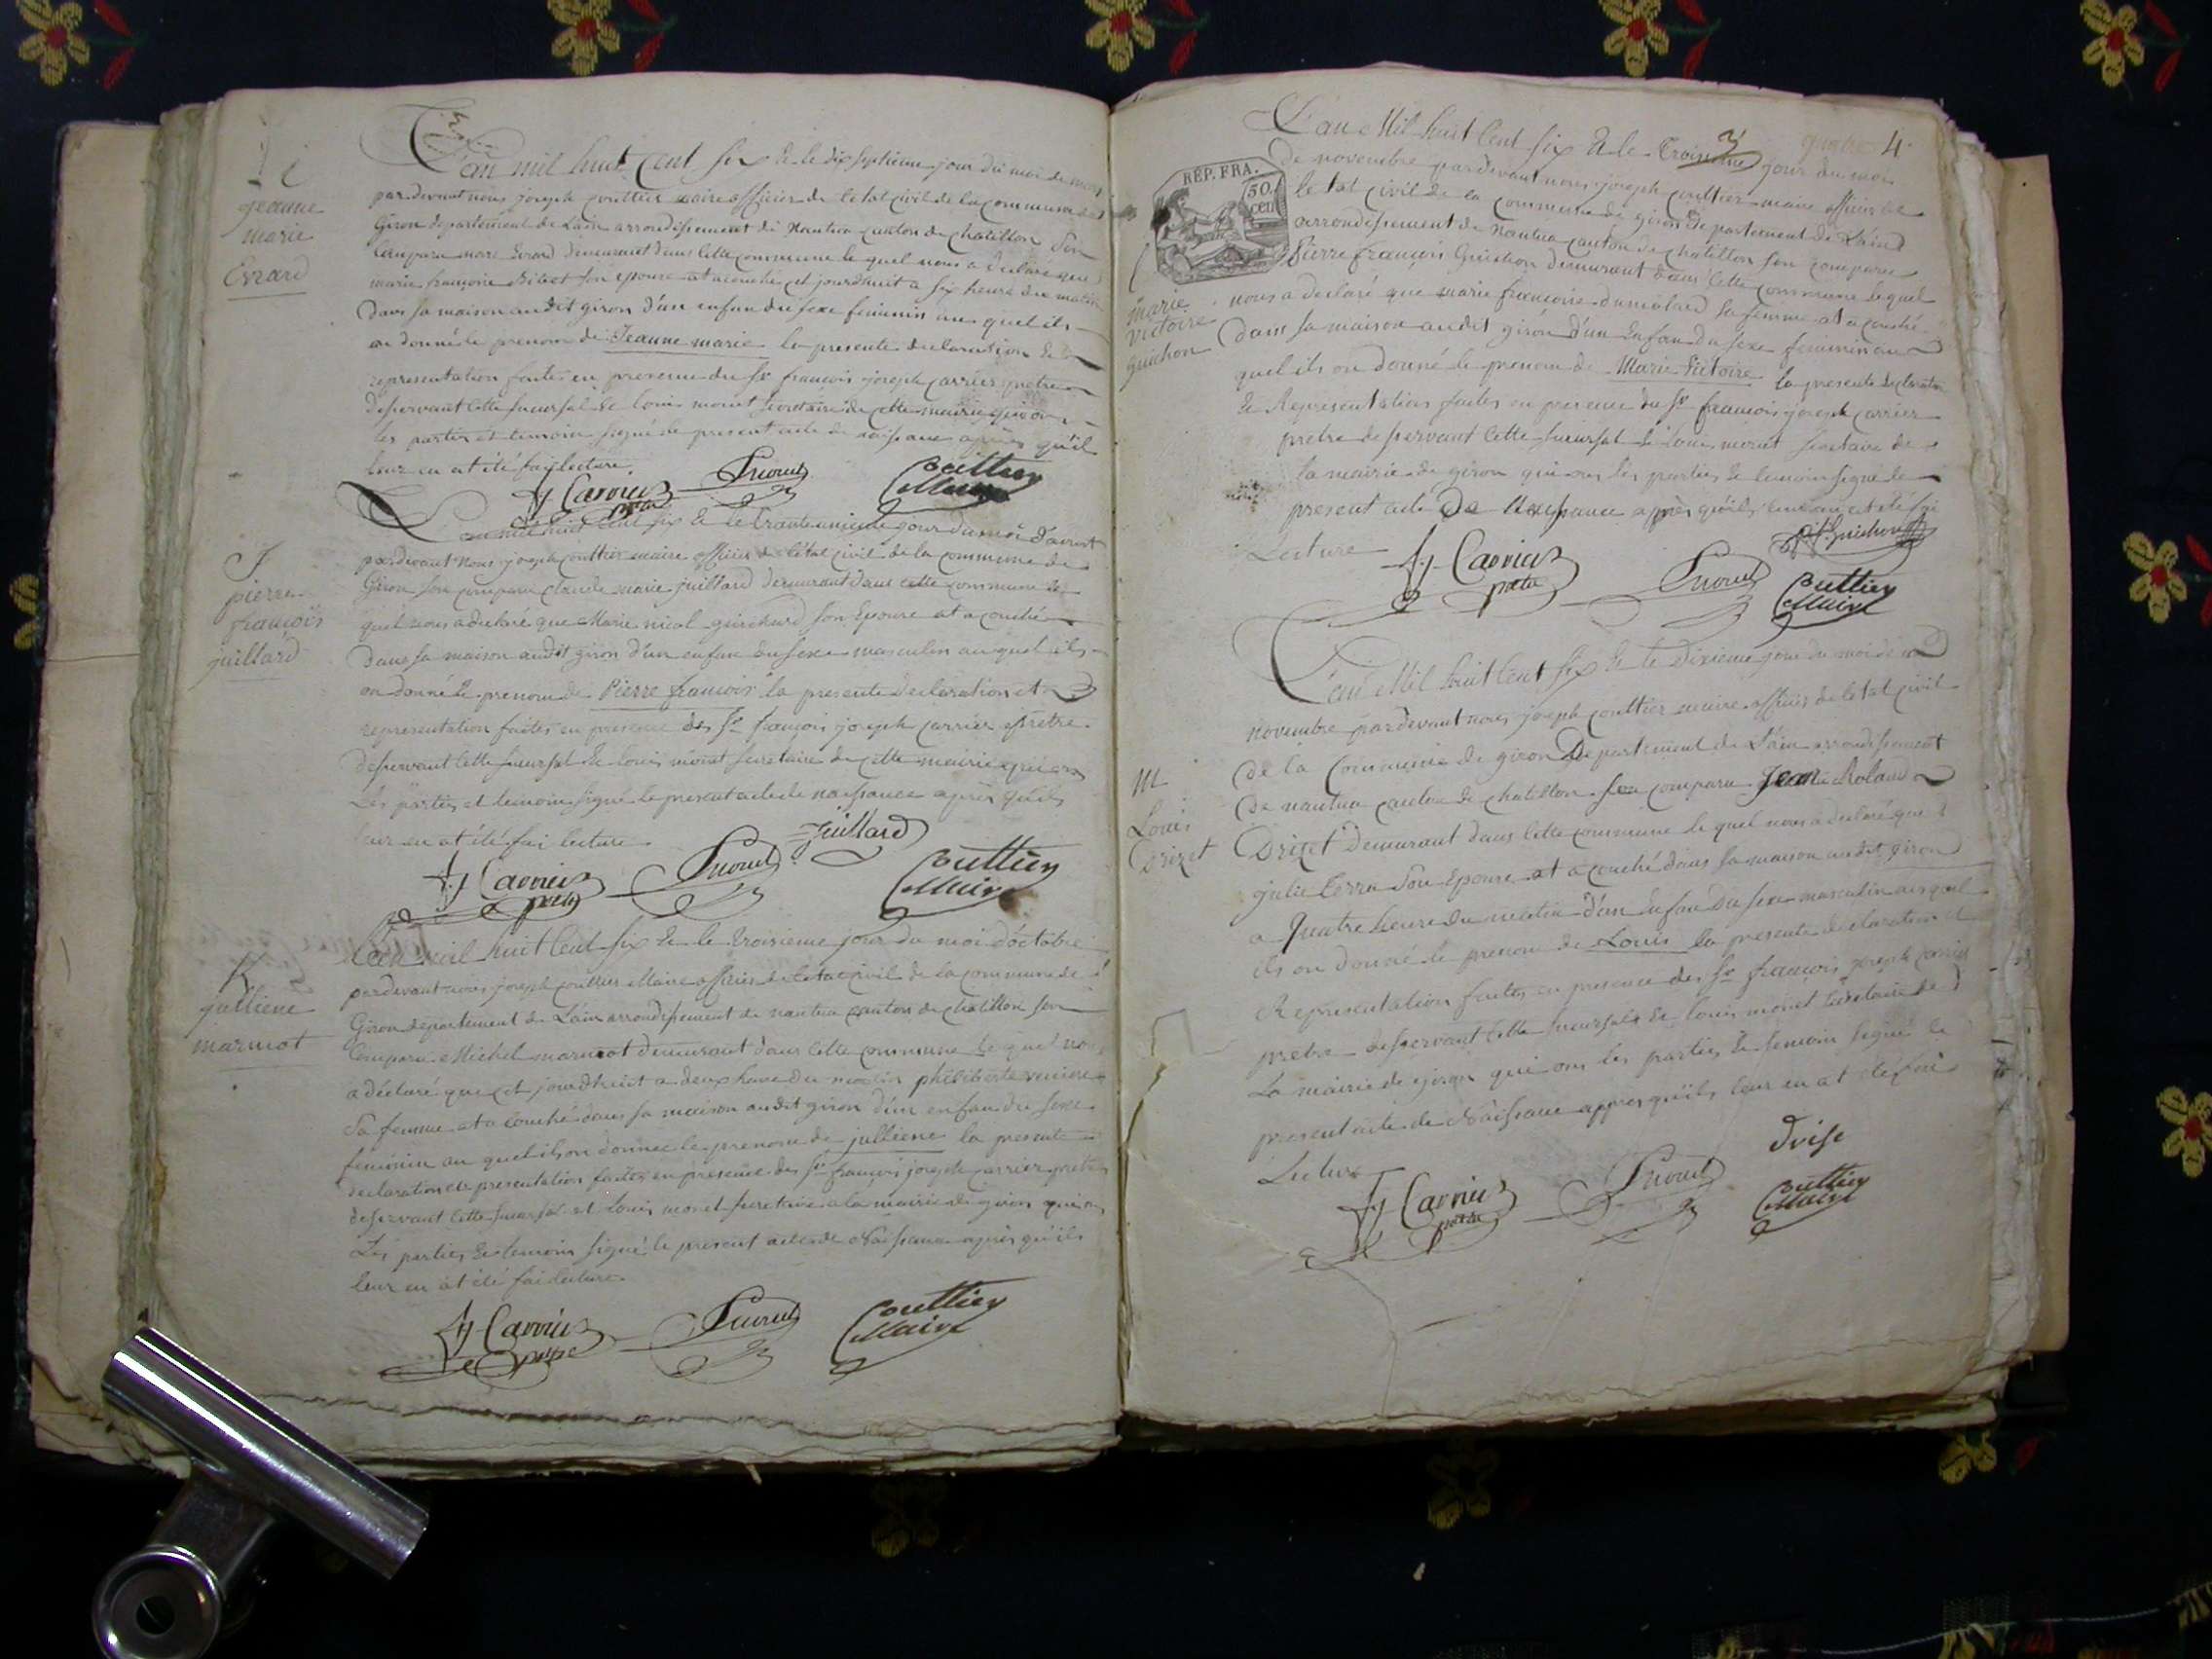 L'an mil huit cent six & le dix septieme jour du moi de mars
pardevant nous joseph couttier maire officier de letat civil de la commune de
Giron departement de Lain arrondissement de Nantua canton de chatillon son
comparu marc Evrard demeurant dans cette commune le quel nous a declaré que
marie françoise son epouse at acouché cet jourdhuit a six heure du matin
dans sa maison audit giron d'un enfan du sexe feminin au quel ils
on donné le prenom de Jeanne marie la presente declaration &
representation faites en presence du Sr françois joseph carrier pretre
desservant cette sucursal & louis monet secretaire de cette mairie qui on
les parties et temoin signé le present acte de naissance apres qu'il
leur en at été fai lecture.
fj Carrier pretre
Lmonet
Couttier Maire
jeanne
marie
Evrard
L'an mil huit cent six & le trente unieme jour du moi d'aoust
pardevant nous joseph couttier maire officier de l'état civil de la commune de
Giron son comparu claude marie juillard demeurant dans cette commune le
quel nous a declaré que Marie nicol guichard son Epouse at acouché
dans sa maison audit giron d'un enfan du sexe masculin au quel ils
on donné le prenom de Pierre françois la presente declaration et
representation faites en presence des Sr françois joseph carrier pretre
desservant cette sucursal & louis monet secretaire de cette mairie qui on
Les parties et temoin signé le present acte de naissance apres qu'ils
leur en at été fai lecture
juillard
fj Carrier pretre
Lmonet
Couttier Maire
J
pierre
françois
juillard
L'an mil huit cent six & le troisieme jour du moi d'octobre
pardevant nous joseph couttier Maire officier de letat civil de la commune de
Giron departement de Lain arrondissement de nantua canton de chatillon son
Comparu Michel marmot demeurant dans cette commune le quel nous
a déclaré que cet jourdhuit a deux heure du matin philiberte
Sa femme at acouché dans sa maison audit giron d'un enfan du sexe
feminin au quel ils on donnee le prenom de julliene la presente
declaration & presentation faites en présence des Sr françois joseph carrier pretre
desservant cette sucursal et Louis monet secretaire a la mairie de giron qui on
Les parties & temoin signé le present acte de Naissance apres qu'ils
leur en at été fai lecture.
fj Carrier pretre
Lmonet
Couttier Maire
K
julliene
marmot
quatre 4
L'an Mil huit Cent six & le Troisieme jour du moi
3
de novembre pardevant nous joseph couttier maire officier de
letat civil de la commune de giron departement de Lain
arrondissement de nantua canton de chatillon son comparu
Pierre françois Guichon demeurant dans cette commune lequel
nous a declaré que marie francoise sa femme at acouché
dans sa maison audit giron d'un Enfan du sexe feminin au
quel ils on donné le prenom de Marie Victoire la presente declaration
& Representation faites en presence du Sr francois joseph carrier
pretre desservant cette sucursal & louis monet secretaire de
la mairie de giron qui on les parties & temoin signé le
present acte De Naissance après qu'ils leur en at été fai
Lecture
pf Guichon
fj Carrier pretre
Lmonet
Couttier Maire
REP. FRA.
50
cen
marie
victoire
guichon
L'an Mil huit Cent six & le Dixieme jour du moi de
novembre pardevant nous joseph couttier maire officier de letat civil
de la Commune de giron Departement de Lain arrondissement
de nantua canton de chatillon son comparu Jean Roland
Drizet demeurant dans cette commune le quel nous a declaré que
julie son Epouse at acouché dans sa maison audit giron
a Quatre heure du matin d'un Enfan du sexe masculin au quel
ils on donné le prenom de Louis la presente declaration
& Representation faites en presence des Sr françois joseph carrier
pretre desservant cette sucursale & louis monet secretaire de
La mairie de giron qui on les parties & temoin signé le
present acte de Naissance appres qu'ils leur en at été fai
Lecture
fj Carrier pretre
Lmonet
Couttier Maire
M
Louis
Drizet